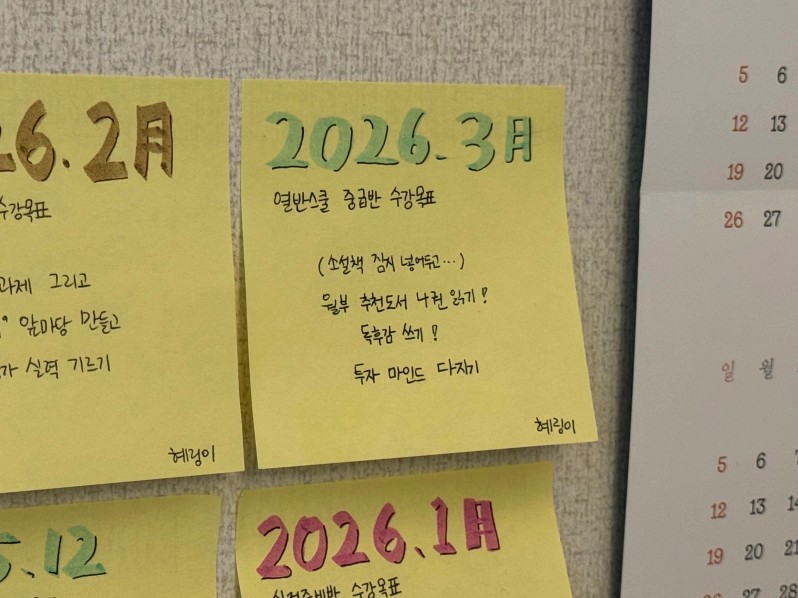 26.2月
수강목표
과제 그리고
앞마당 만들고
실력 기르기
혜링이
2026.3月
열반스쿨 중급반 수강목표
(소설책 잠시 넣어두고...)
월부 추천도서 4권 읽기!
독후감 쓰기!
투자 마인드 다지기
혜링이
5.12
2026.1月
실전준비반 수강목표
5 6
12 13
19 20
26 27
일 월
5 6
12 13 14
19 20 21
26 27 28